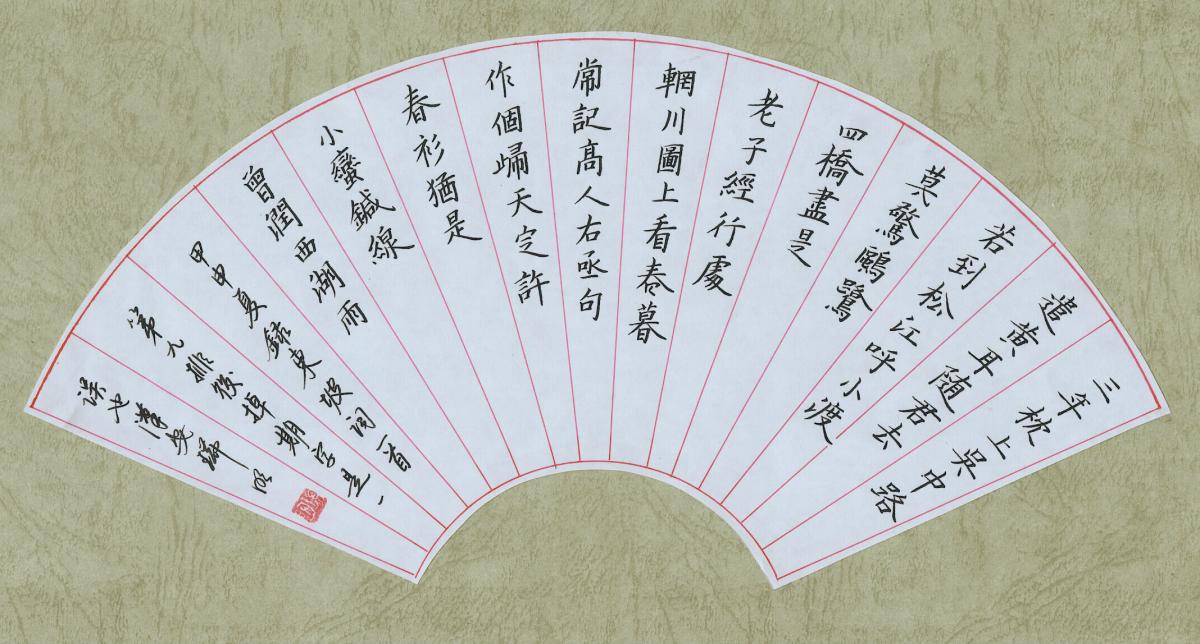 三年枕上吳中路
遣黄耳隨君去
若到松江呼小渡
莫驚鷗鷺
四橋盡是
老子經行處
輞川圖上看春暮
常記髙人右丞句
作個歸天定許
春衫猶是
小蠻鍼線
曾潤西湖雨
甲申夏錄東坡詞一首
第九排後掉期字是一
误也